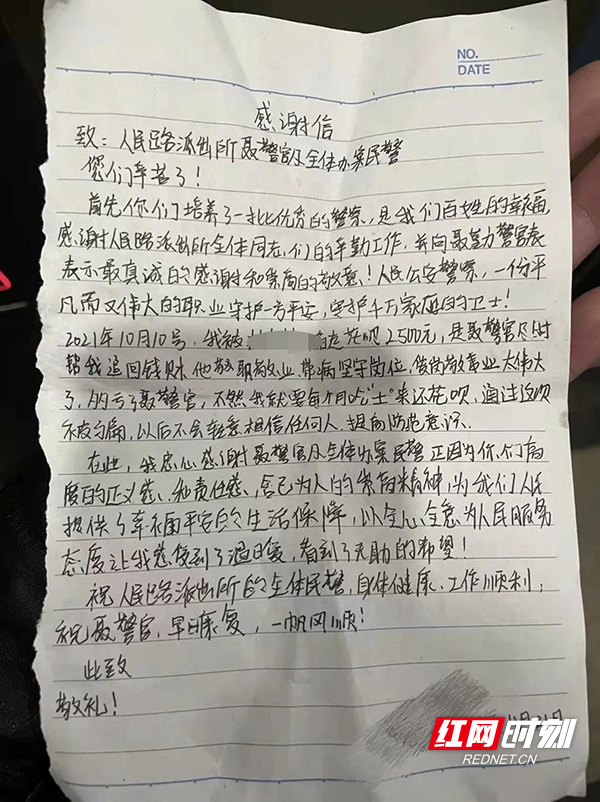 NO.
DATE
感谢信
致：人民路派出所聂警官及全体办案民警
您们辛苦了！
首先你们培养了一批优秀的警察，是我们百姓的幸福，
感谢人民路派出所全体同志们的辛勤工作，并向聂勤警官表
表示最真诚的感谢和崇高的敬意！人民公安警察，一份平
凡而又伟大的职业守护一方平安，守护千万家庭的卫士！
2021年10月10号，我被 走花呗2500元，是聂警官及时
帮我追回钱财，他敬职敬业、带病坚守岗位，爱岗敬业太伟大
了，多亏了聂警官，不然我就要每个月吃"土"来还花呗，通过这次
被骗，以后不会轻意相信任何人，提高防范意识、
在此，我忠心感谢聂警官及全体办案民警正因为你们高
度的正义感、和责任感、舍己为人的崇高精神，为我们人民
提供了幸福平安的生活保障，以全心全意为人民服务
态度让我感受到了温暖，看到了无助的希望！
祝人民路派出所的全体民警，身体健康、工作顺利，
祝聂警官，早日康复，一帆风顺！
此致
敬礼！
11月21日
红网时刻
REDNET.CN